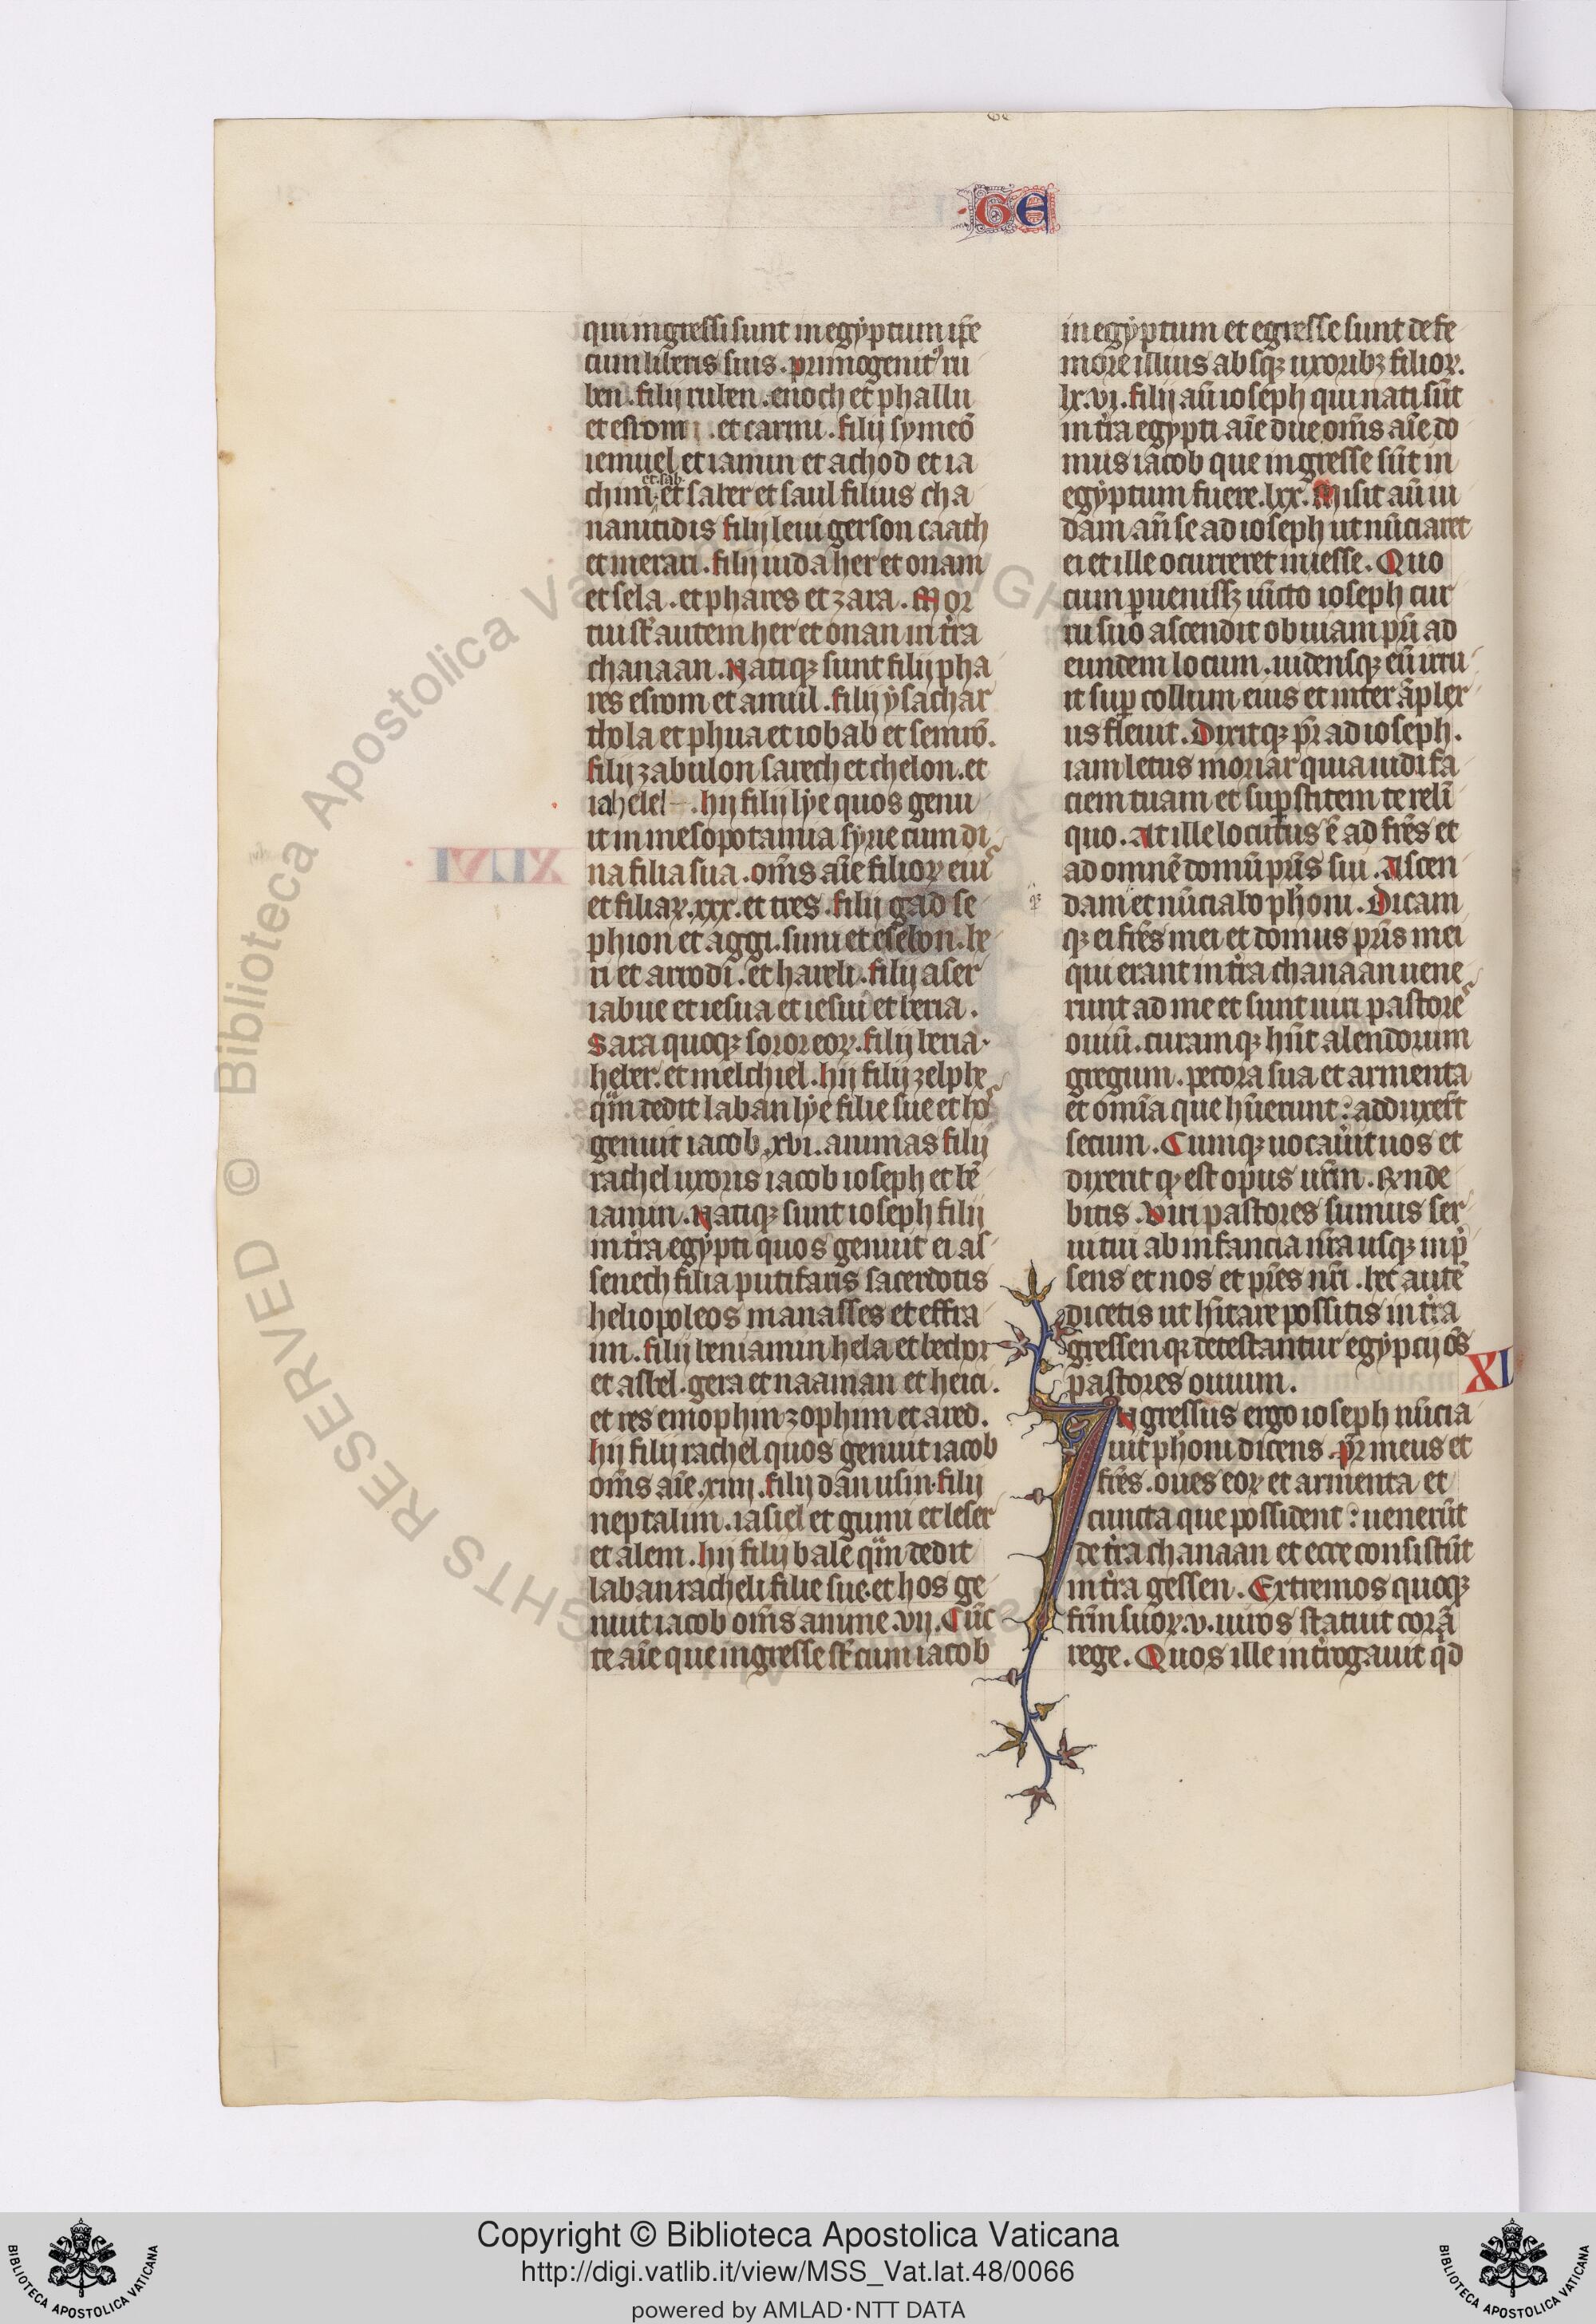 GE
qui ingressi sunt in egyptum ip̄e
cum liberis suis. primogenitꝰ ru
ben. filij ruben. enoch et phallu
et esrom . et carmi. filij symeō
iemuel et iamin et achod et ia
et sab
chim et saber et saul filius cha
nanitidis filij leui gerson caath
et merari. filij iuda her et onam
et sela. et phares et zara. Mor
tui sr̄t autem her et onan in tr̄a
chanaan. Natiqꝫ sunt filij pha
res esrom et amuil. filij ysachar
thola et phua et iobab et semrō.
filij zabulon sarech et chelon. et
iahelel. hij filij lye quos genu
it in mesopotamia syrie cum di
na filia sua. om̄s aīe filioꝝ eiuˢ
et filiaꝝ. xxx. et tres. filij gad se
phion et aggi. suni et eselon. he
ri et arrodi. et hareli. filij aser
iabne et iesua et iesui et beria.
Sara quoqꝫ soror eoꝝ. filij beria.
heber. et melchiel. hij filij zelphe
q̄m dedit laban lye filie sue et hoˢ
genuit iacob. xvi. animas filij
rachel uxoris iacob ioseph et bē
iamin. Natiqꝫ sunt ioseph filij
in tr̄a egypti quos genuit ei as
senech filia putifaris sacerdotis
heliopoleos manasses et effra
im. filij beniamin bela et bechor
et asbel. gera et naaman et heici.
et res emophin zophim et ared.
hij filij rachel quos genuit iacob
om̄s aīe. xiiij. filij dan usin. filij
neptalim. iasiel et guni et ieser
et salem. hij filij bale q̄m dedit
laban racheli filie sue. et hos ge
nuit iacob om̄s anime. vij. Cūc
te aīe que ingresse sr̄t cum iacob
in egyptum et egresse sunt de fe
more illius absqꝫ uxoribꝫ filioꝝ.
lx. vj. filij aū ioseph qui nati sūt
in tr̄a egypti aīe due om̄s aīe do
mus iacob que ingresse sūt in
egyptum fuere. lxx. Misit aū iu
dam an̄ se ad ioseph ut nūciaret
ei et ille ocurreret in iesse. Quo
cum ꝑuenissꝫ iūcto ioseph cur
ru suo ascendit obuiam pr̄i ad
eundem locum. uidensqꝫ eū irru
it suꝑ collum eius et inter āplex
us fleuit. Dixitqꝫ pr̄ ad ioseph.
iam letus moriar quia uidi fa
ciem tuam et suꝑstitem te reli
quo. At ille locutus ē ad fr̄es et
ad omnē domū pr̄is sui. Ascen
dam et nūciabo ph̄oni. Dicam
qꝫ ei fr̄es mei et domus pr̄is mei
qui erant in tr̄a chanaan uene
runt ad me et sunt uiri pastoreˢ
ouiū. curamqꝫ hn̄t alendorum
gregum. pecora sua et armenta
et omīa que h̄uerunt: adduxer̄t
secum. Cumqꝫ uocauīt uos et
dixerit qͩ est opus ur̄m. Rn̄de
bitis. Viri pastores sumus ser
ui tui ab infancia nr̄a usqꝫ in p̄
sens et nos et pr̄es nr̄i. hec autē
dicetis ut h̄itare possitis in tr̄a
gressen qꝛ detestantur egypcij om̄s
XL
pastores ouium.
INgressus ergo ioseph nūcia
uit ph̄oni dicens. pr̄ meus et
fr̄es. oues eoꝝ et armenta et
cuncta que possident: uenerūt
de tr̄a chanaan et ecce consistūt
in tr̄a gessen. Extremos quoqꝫ
fr̄m suoꝝ. v. uiros statuit corā
rege. Quos ille int̄rogauit qͩd
Copyright © Biblioteca Apostolica Vaticana
http://digi.vatlib.it/view/MSS_Vat.lat.48/0066
powered by AMLAD·NTT DATA
BIBLIOTECA APOSTOLICA VATICANA
BIBLIOTECA APOSTOLICA VATICANA